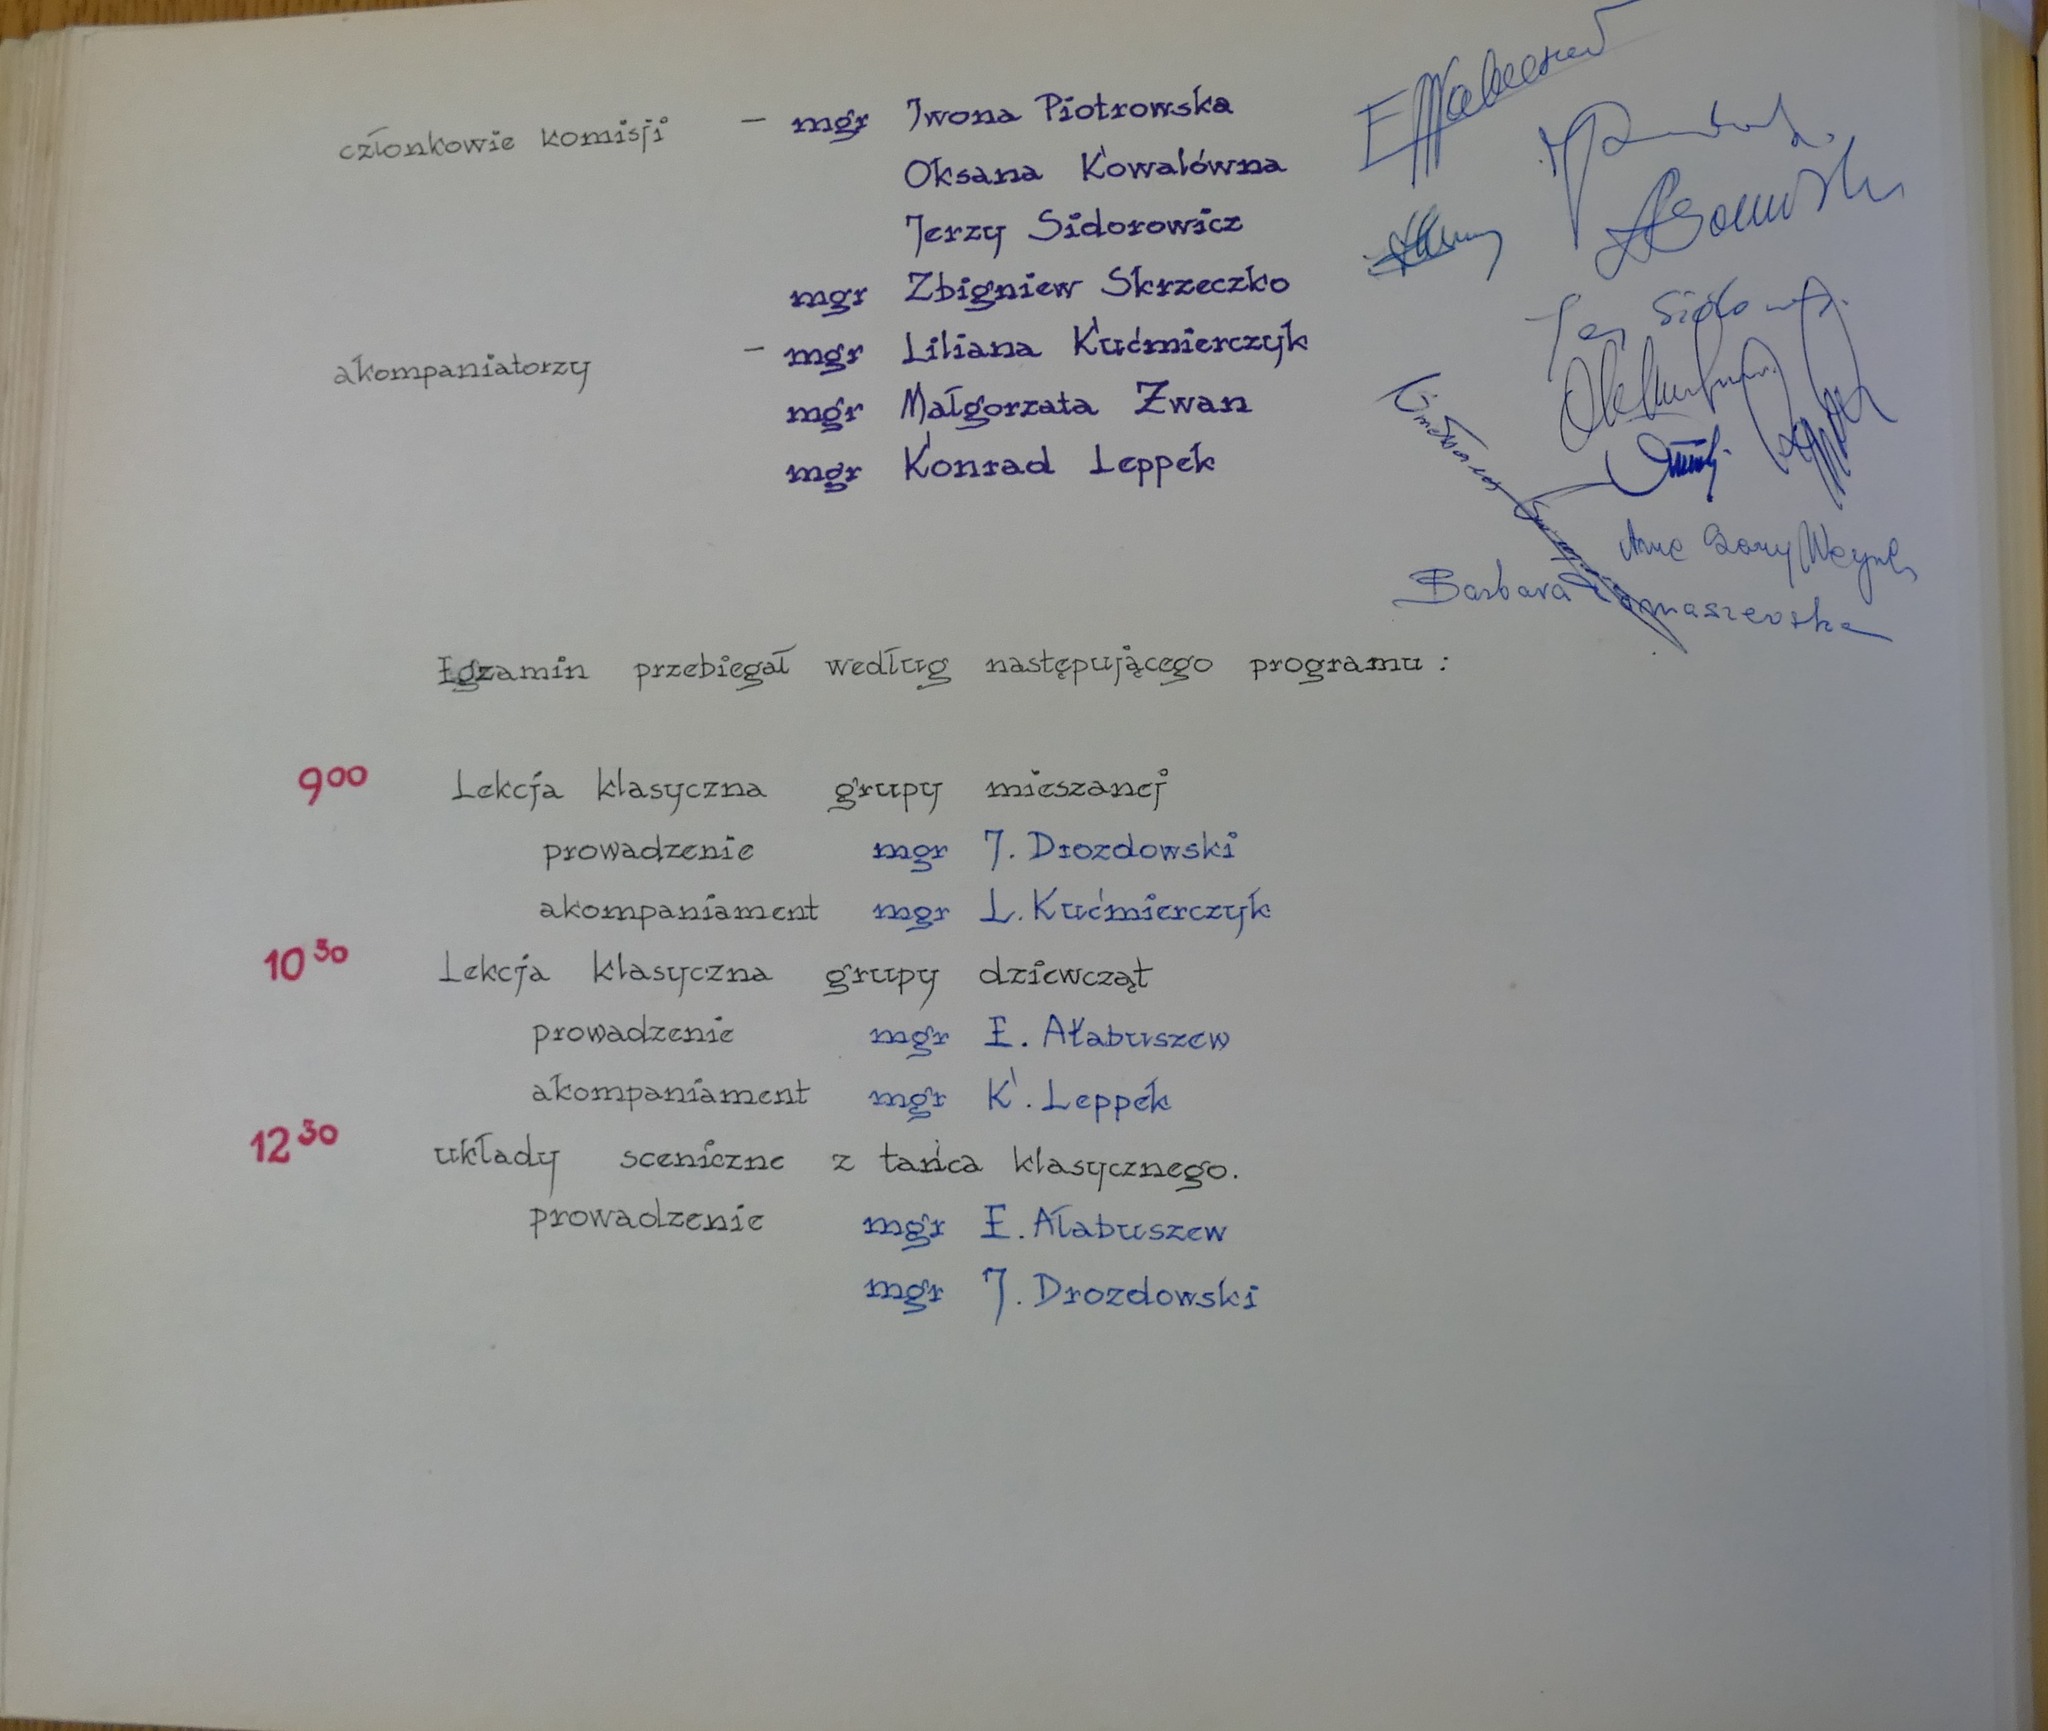 członkowie komisji – mgr Iwona Piotrowska
Oksana Kowalówna
Jerzy Sidorowicz
mgr Zbigniew Skrzeczko
akompaniatorzy – mgr Liliana Kućmierczyk
mgr Małgorzata Zwan
mgr Konrad Leppek
Barbara Tomaszewska
Egzamin przebiegał według następującego programu :
9 00 Lekcja klasyczna grupy mieszanej
prowadzenie mgr J. Drozdowski
akompaniament mgr L. Kućmierczyk
10 30 Lekcja klasyczna grupy dziewcząt
prowadzenie mgr E. Ałabuszew
akompaniament mgr K. Leppek
12 30 układy sceniczne z tańca klasycznego.
prowadzenie mgr E. Ałabuszew
mgr J. Drozdowski